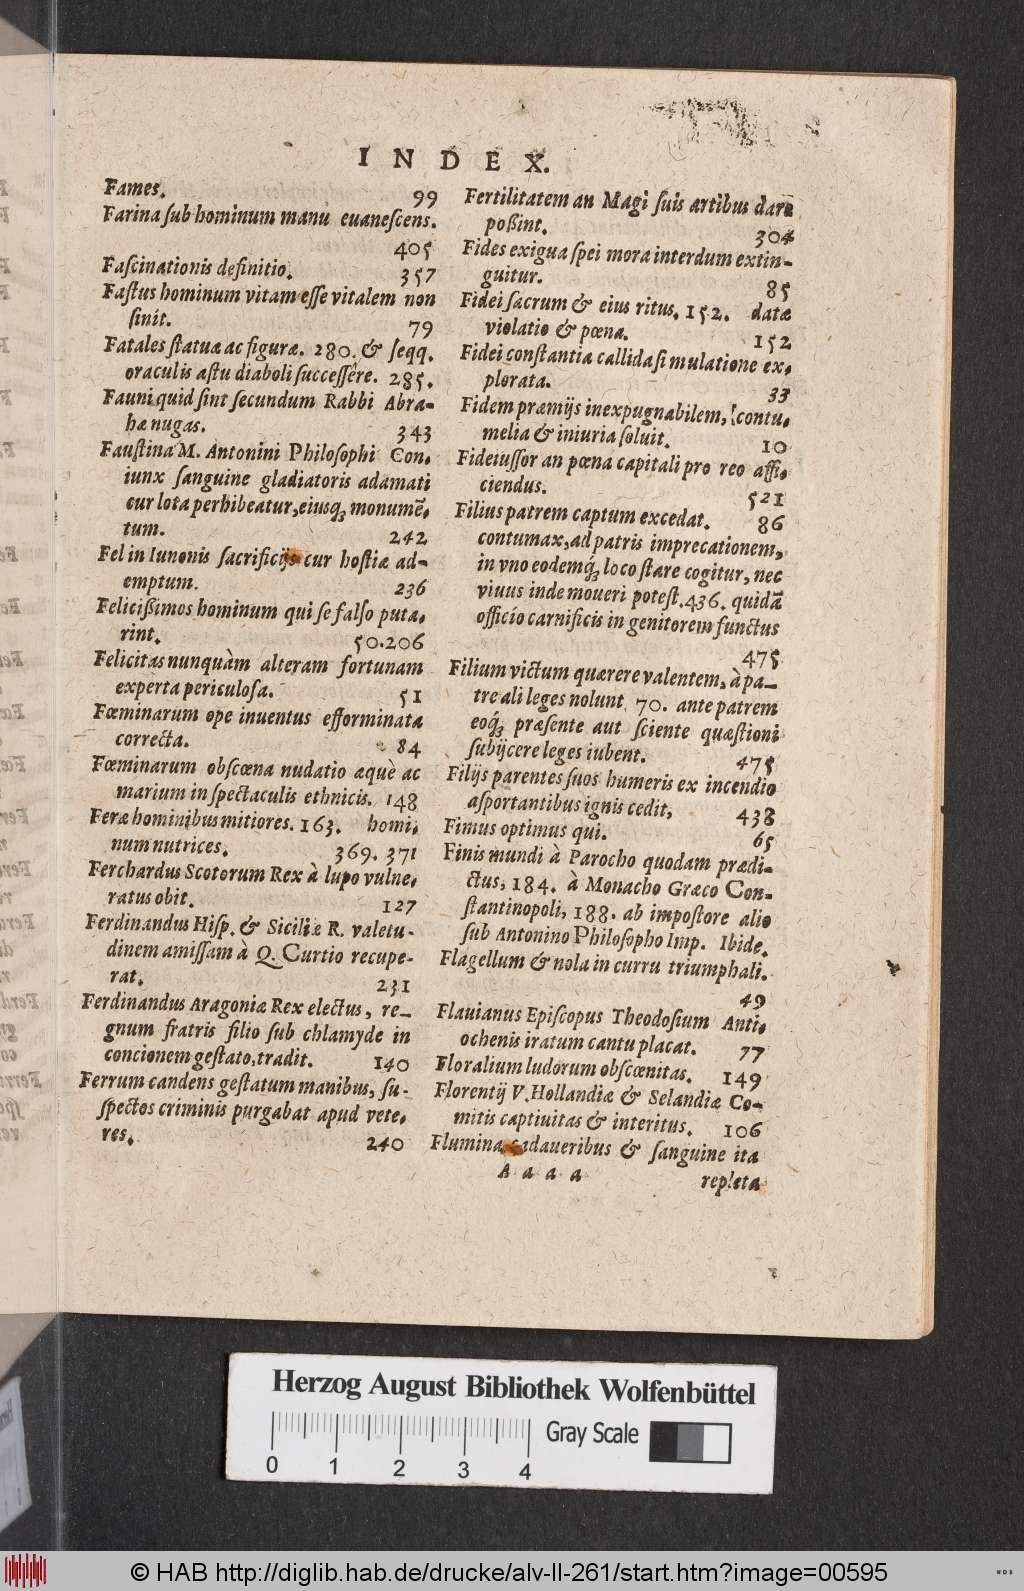 INDEX.
Fames. 99
Farina ſub hominum manu euaneſcens.
405
Faſcinationis definitio. 357
Faſtus hominum vitam eſſe vitalem non
ſinit. 79
Fatales ſtatuæ ac figuræ. 280. & ſeqq.
oraculis aſtu diaboli ſucceſſêre. 285.
Fauni quid ſint ſecundum Rabbi Abra-
hæ nugas. 343
Fauſtina M. Antonini Philoſophi Con-
iunx ſanguine gladiatoris adamati
cur lota perhibeatur, eiusq́; monumē-
tum. 242
Fel in Iunonis ſacrificijs cur hoſtiæ ad-
emptum. 236
Feliciſſimos hominum qui ſe falſo puta-
rint. 50.206
Felicitas nunquàm alteram fortunam
experta periculoſa. 51
Fœminarum ope inuentus efforminata
correcta. 84
Fœminarum obſcœna nudatio æquè ac
marium in ſpectaculis ethnicis. 148
Feræ hominibus mitiores. 163. homi-
num nutrices. 369. 371
Ferchardus Scotorum Rex à lupo vulne-
ratus obit. 127
Ferdinandus Hiſp. & Siciliæ R. valetu-
dinem amiſſam à Q. Curtio recupe-
rat. 231
Ferdinandus Aragoniæ Rex electus, re-
gnum fratris filio ſub chlamyde in
concionem geſtato, tradit. 140
Ferrum candens geſtatum manibus, ſu-
ſpectos criminis purgabat apud vete-
res. 240
Fertilitatem an Magi ſuis artibus dare
poßint. 304
Fides exigua ſpei mora interdum extin-
guitur. 85
Fidei ſacrum & eius ritus. 152. datæ
violatio & pœna. 152
Fidei conſtantia callida ſimulatione ex-
plorata. 33
Fidem præmijs inexpugnabilem, contu-
melia & iniuria ſoluit. 10
Fideiuſſor an pœna capitali pro reo affi-
ciendus. 521
Filius patrem captum excedat. 86
contumax, ad patris imprecationem,
in vno eodemq́; loco ſtare cogitur, nec
viuus inde moueri poteſt. 436. quidā
officio carnificis in genitorem functus
475
Filium victum quærere valentem, à pa-
tre ali leges nolunt 70. ante patrem
eoq́; præſente aut ſciente quæſtioni
ſubijcere leges iubent. 475
Filijs parentes ſuos humeris ex incendio
aſportantibus ignis cedit, 438
Fimus optimus qui. 65
Finis mundi à Parocho quodam prædi-
ctus, 184. à Monacho Græco Con-
ſtantinopoli, 188. ab impoſtore alio
ſub Antonino Philoſopho Imp. Ibide.
Flagellum & nola in curru triumphali.
49
Flauianus Epiſcopus Theodoſium Anti-
ochenis iratum cantu placat. 77
Floralium ludorum obſcœnitas. 149
Florentij V. Hollandiæ & Selandiæ Co-
mitis captiuitas & interitus. 106
Flumina cadaueribus & ſanguine ita
Aaaa repleta
Herzog August Bibliothek Wolfenbüttel
Gray Scale
0 1 2 3 4
© HAB http://diglib.hab.de/drucke/alv-ll-261/start.htm?image=00595